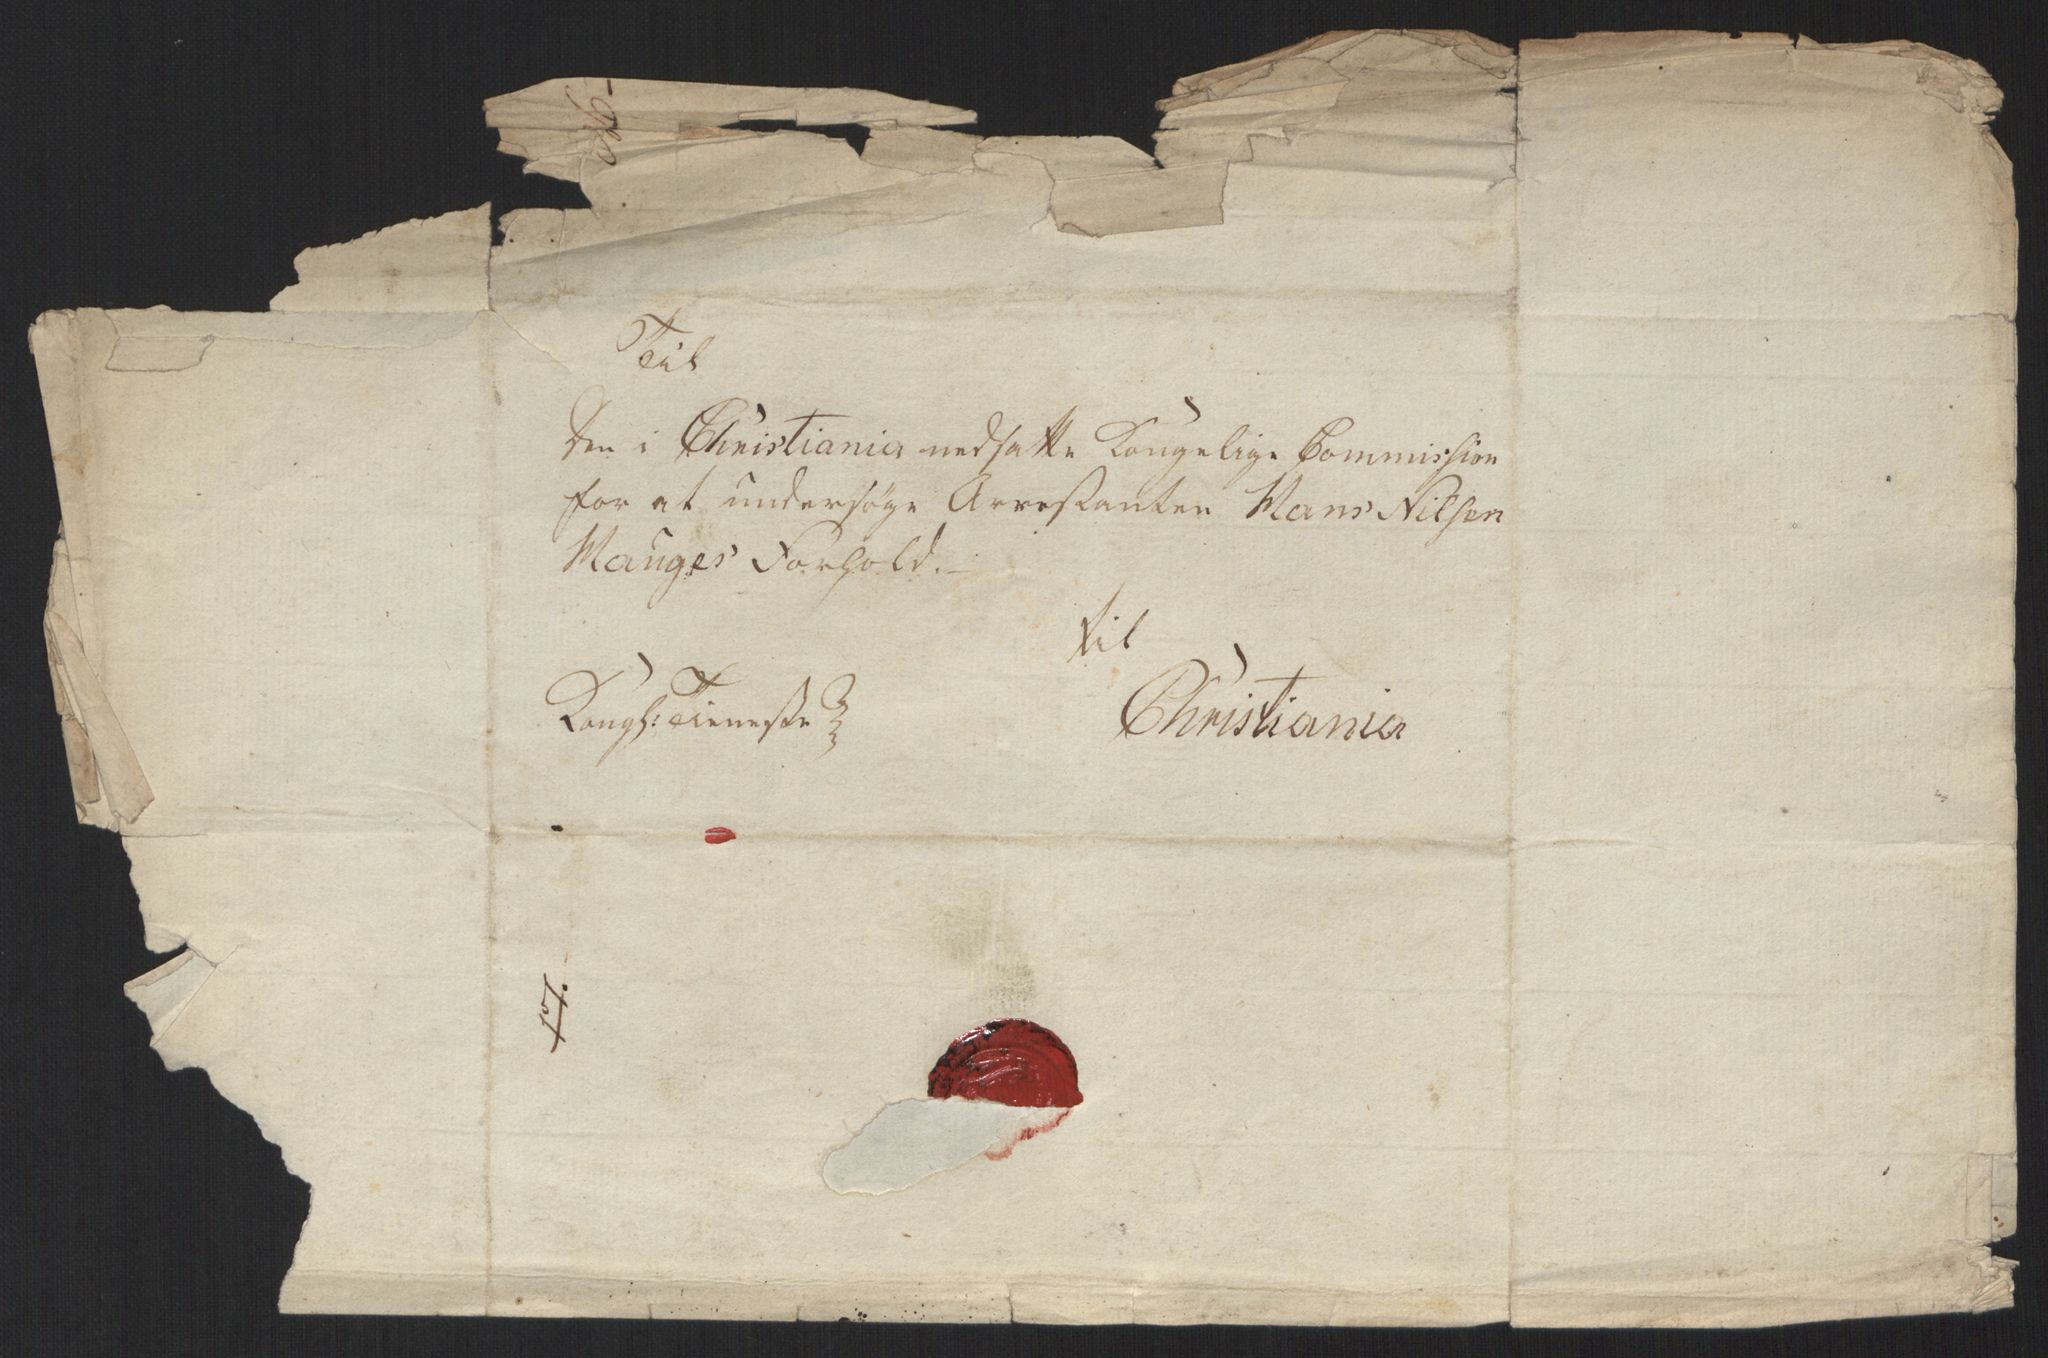 Til
Den i Christiania nedsatte Kongelige Commission
for at undersøge Arrestanten Hans Nilsen
Hauges Forhold. —
til
Kongl: Tieneste
Christiania
17.